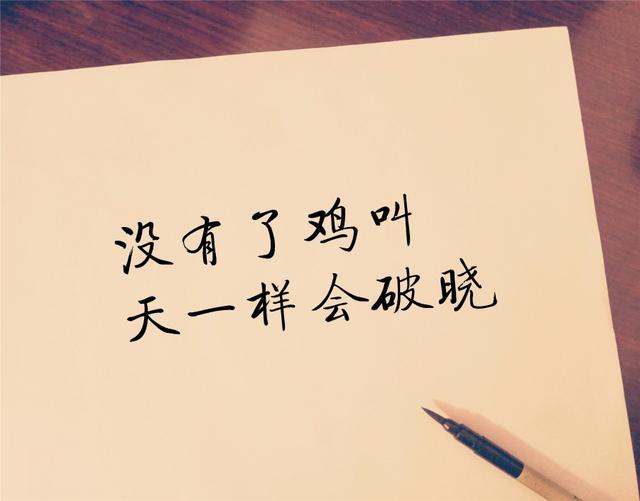 没有了鸡叫
天一样会破晓